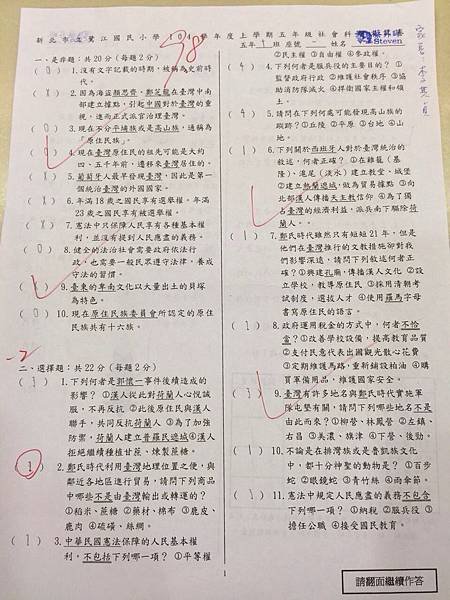 新北市立鷺江國民小學 104學年度上學期五年級社會科
五年1班 座號 姓名 Steven
98
一、是非題：共20分（每題2分）
(O) 1.沒有文字記載的時期，被稱為史前時代。
2.因為海盜顏思齊、鄭芝龍在臺灣中南
部建立據點，引起中國對於臺灣的重
視，進而正式派官治理臺灣。
3.現在不分平埔族或是高山族，通稱為
「原住民族」。
4.現在臺灣原住民的祖先可能是大約
四、五千年前，遷移來臺灣居住的。
5.葡萄牙人最早發現臺灣，因此是第一
個統治臺灣的外國國家。
6.年滿18歲之國民享有選舉權。年滿
23歲之國民享有被選舉權。
7.憲法中只保障人民享有各種基本權
利，並沒有提到人民應盡的義務。
8.健全的法治社會需要政府依法行
政，也需要一般民眾遵守法律，養成
守法的習慣。
9.臺東的卑南文化以大量出土的貝塚
為特色。
10.現在原住民族委員會所認定的原住
民族共有十六族。
-2
二、選擇題：共22分（每題2分）
1.下列何者是郭懷一事件後續造成的
影響？ ①漢人從此對荷蘭人心悅誠
服，不再反抗 ②此後原住民與漢人
聯手，共同反抗荷蘭人 ③為了加強
防禦，荷蘭人建立普羅民遮城④漢人
拒絕繼續種植甘蔗、煉製蔗糖。
(1) 2.鄭氏時代利用臺灣地理位置之便，與
鄰近各地區進行貿易，請問下列商品
中哪些不是由臺灣輸出或轉運的？
①稻米、蔗糖 ②藥材、棉布 ③鹿皮、
鹿肉 ④硫磺、絲綢。
3.中華民國憲法保障的人民基本權
利，不包括下列哪一項？ ①平等權
②民主權 ③自由權 ④參政權
(4) 4.下列何者是服兵役的主要目的？ ①
監督政府行政 ②維護社會秩序 ③協
助消防隊滅火 ④捍衛國家主權和領
土。
5.請問在下列何處可能發現高山族的
蹤跡？①丘陵 ②平原 ③台地 ④山
地。
6.下列關於西班牙人對於臺灣統治的
敘述，何者正確？ ①在雞籠（基
隆）、滬尾（淡水）建立教堂、城堡
②建立熱蘭遮城，做為貿易據點 ③向
北部漢人傳播天主教信仰 ④為了獨
占臺灣的經濟利益，派兵南下驅除荷
蘭人。
(1) 7.鄭氏時代雖然只有短短21年，但是
他們在臺灣推行的文教措施卻對我
們影響深遠，請問下列敘述何者正
確？①興建孔廟，傳播漢人文化 ②設
立學校，教導原住民 ③採用清朝考
試制度，選拔人才 ④使用羅馬字母
書寫原住民的語言。
8.政府運用稅金的方式中，何者不恰
當？①改善學校設備，提高教育品質
②支付民意代表出國觀光散心花費
③定期維護馬路，重新鋪設柏油 ④購
買軍備用品，維護國家安全。
9.臺灣有許多地名與鄭氏時代實施軍
隊屯墾有關，請問下列哪些地名不是
由此而來？①柳營、林鳳營 ②左鎮、
右昌 ③美濃、旗津 ④下營、後勁。
10.不論是在排灣族或是魯凱族文化
中，都十分神聖的動物是？ ①百步
蛇 ②眼鏡蛇 ③青竹絲 ④雨傘節。
11.憲法中規定人民應盡的義務不包含
下列哪一項？ ①納稅 ②服兵役 ③
擔任公職 ④接受國民教育。
1
請翻面繼續作答